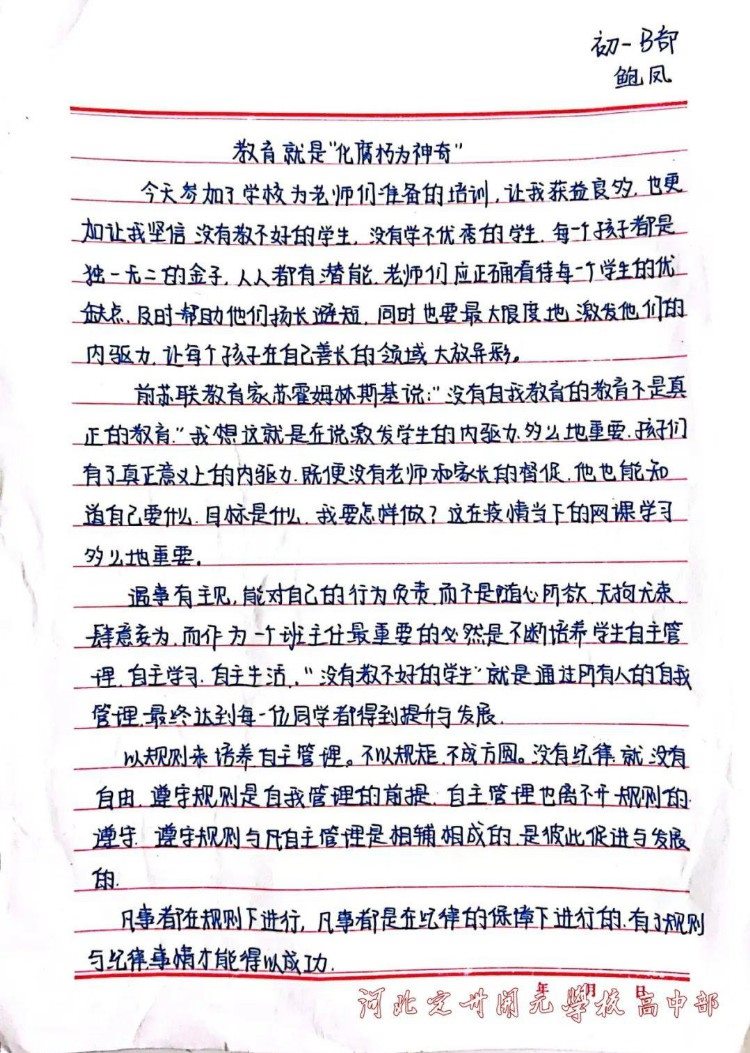 初一B部
鲍凤
教育就是“化腐朽为神奇”
今天参加了学校为老师们准备的培训,让我获益良多,也更
加让我坚信没有教不好的学生,没有学不优秀的学生,每一个孩子都是
独一无二的金子,人人都有潜能,老师们应正确看待每一个学生的优
缺点,及时帮助他们扬长避短,同时也要最大限度地激发他们的
内驱力,让每个孩子在自己善长的领域大放异彩。
前苏联教育家苏霍姆林斯基说:“没有自我教育的教育不是真
正的教育。”我想这就是在说激发学生的内驱力多么地重要,孩子们
有了真正意义上的内驱力,既便没有老师和家长的督促,他也能知
道自己要什么,目标是什么,我要怎样做?这在疫情当下的网课学习
多么地重要。
遇事有主见,能对自己的行为负责,而不是随心所欲,无拘无束,
肆意妄为,而作为一个班主任最重要的必然是不断培养学生自主管
理,自主学习,自主生活,“没有教不好的学生”就是通过所有人的自我
管理,最终达到每一位同学都得到提升与发展,
以规则来培养自主管理。不以规矩,不成方圆。没有纪律,就没有
自由,遵守规则是自我管理的前提,自主管理也离不开规则的
遵守,遵守规则与凡自主管理是相辅相成的,是彼此促进与发展
的.
凡事都在规则下进行,凡事都是在纪律的保障下进行的,有了规则
与纪律,事情才能得以成功.
年 月 日
河北定州开元学校高中部